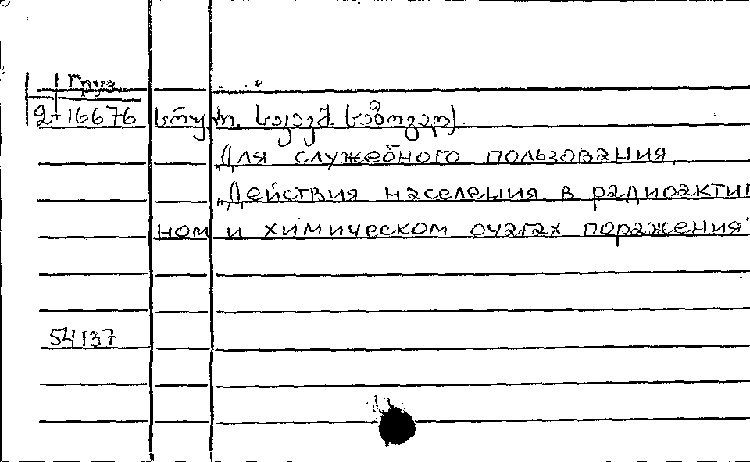 Груз.
2-16676
Для служебного пользования.
„Действия населения в радиоактив
ном и химическом очагах поражения
54137